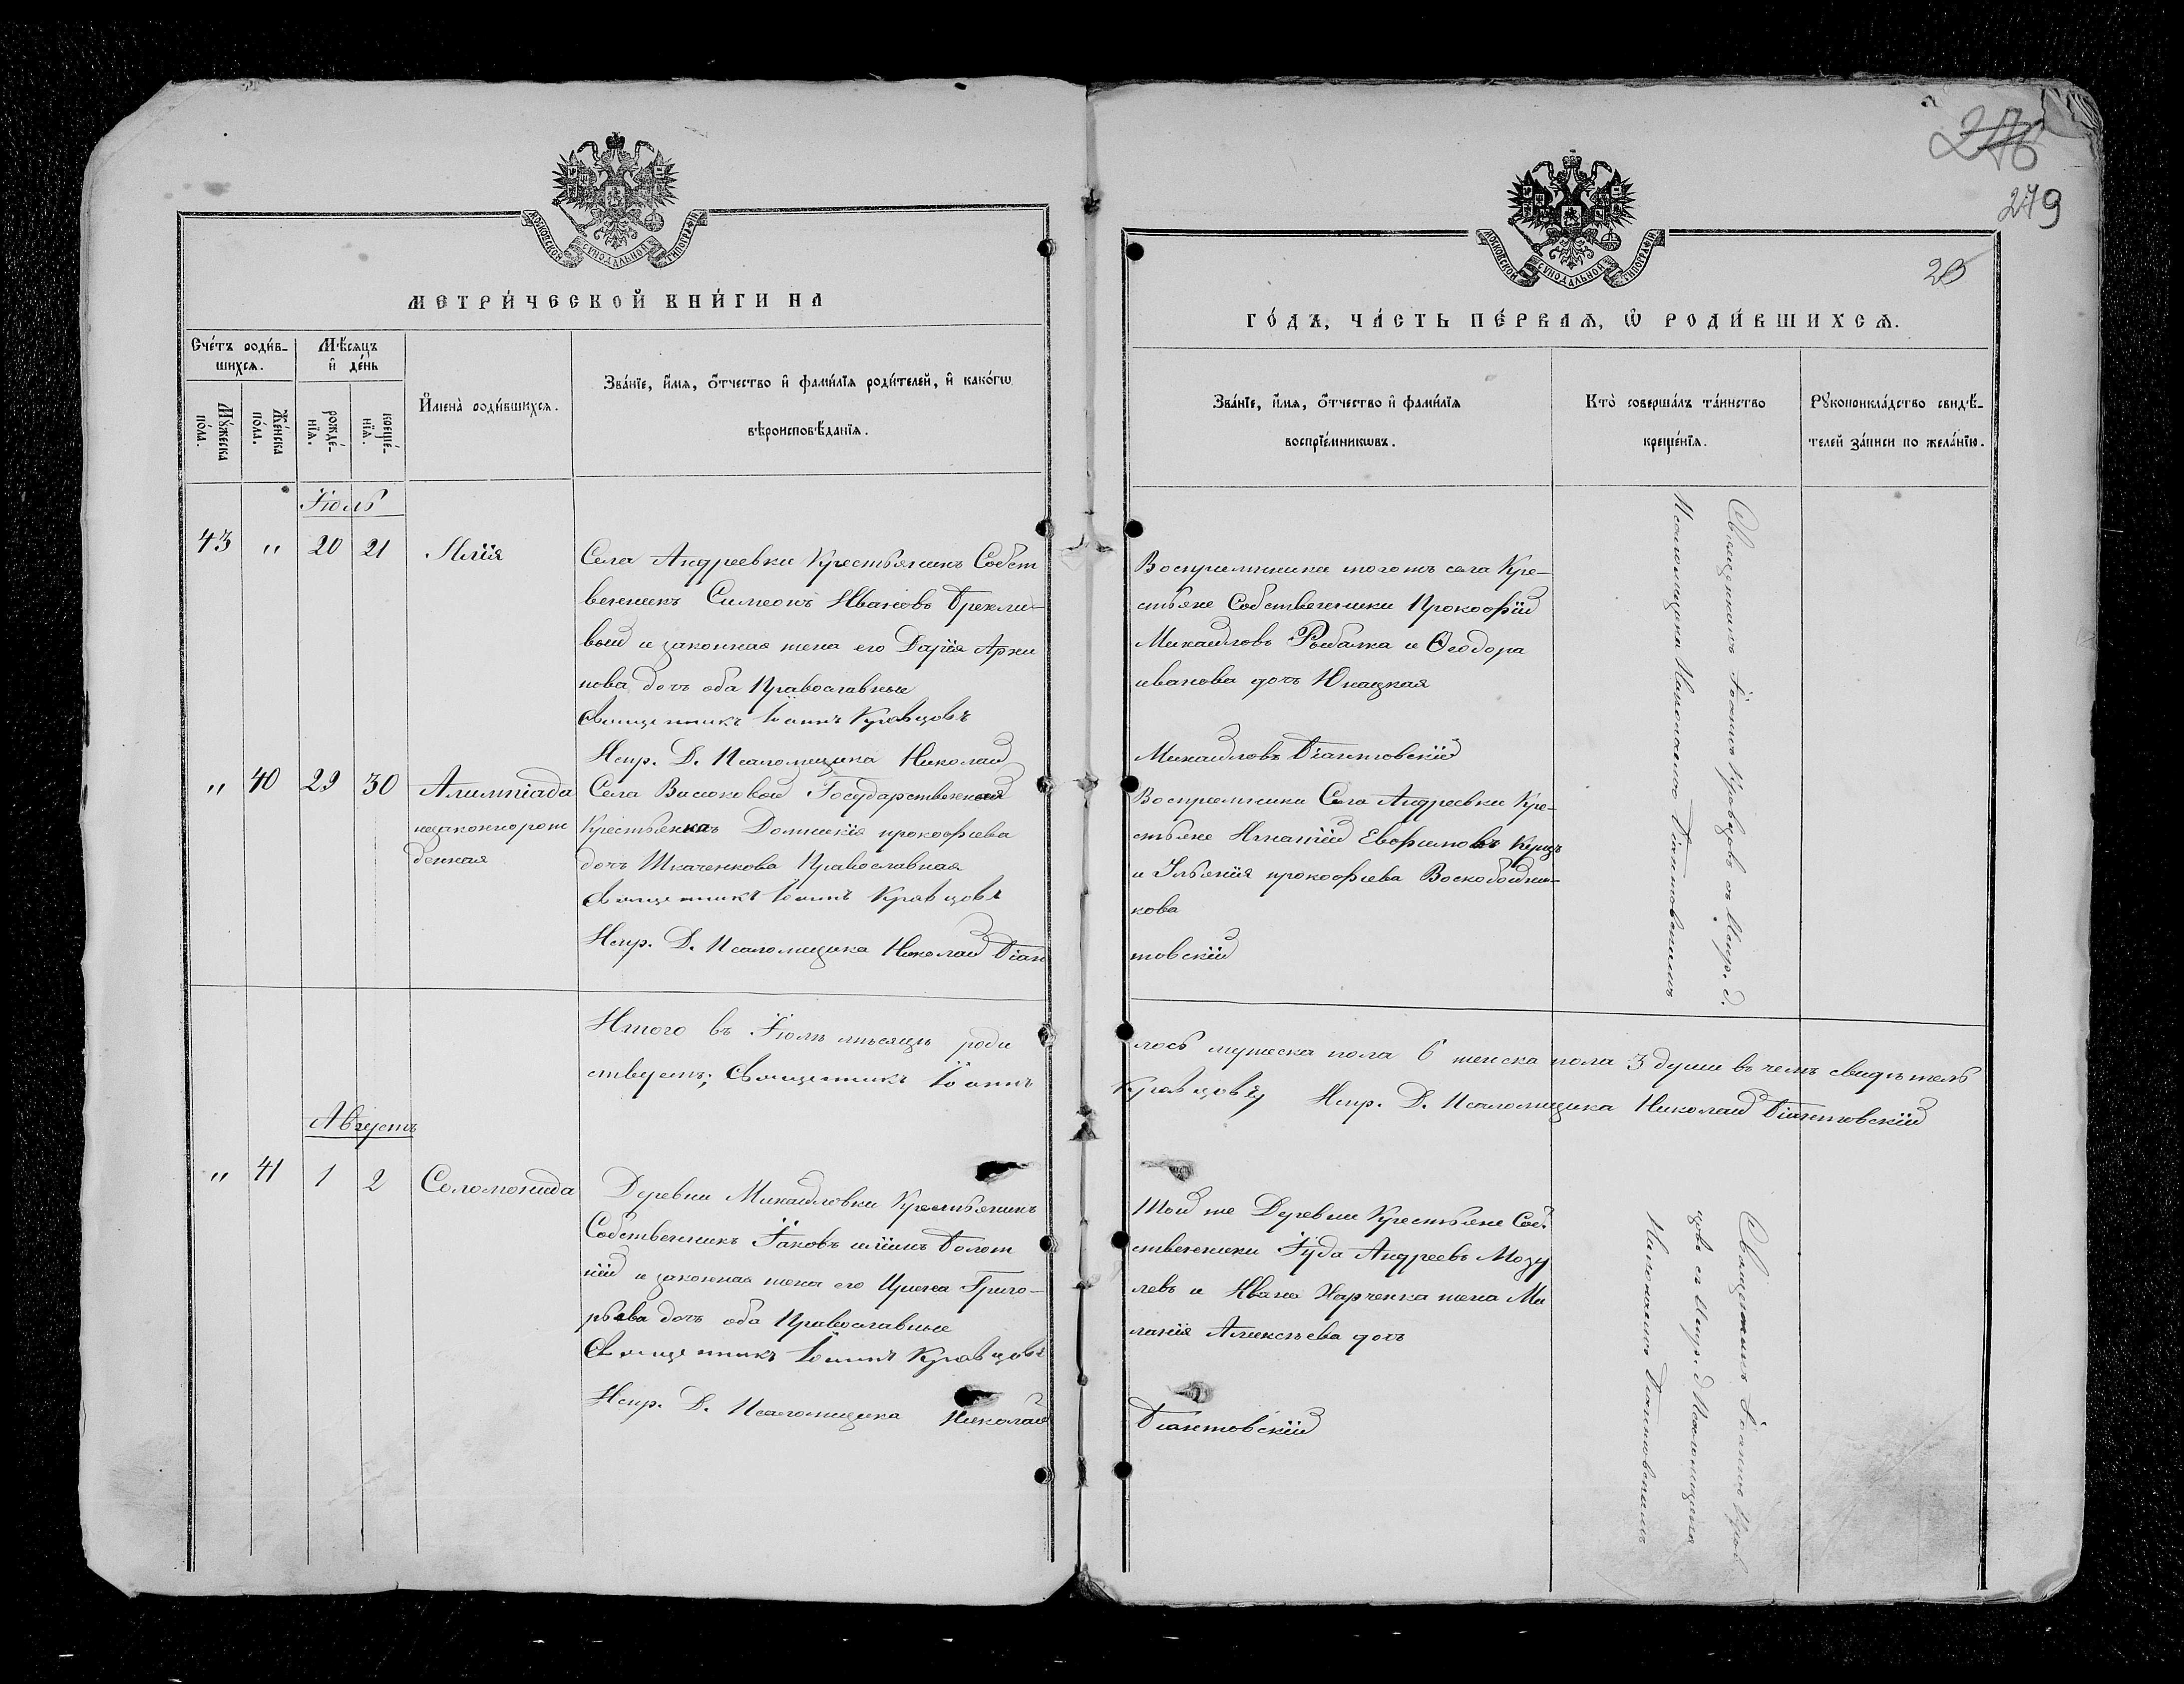 МОСКОВСКОЙ СУНОДАЛЬНОЙ ТИПОГРАФІИ
МЕТРИ́ЧЕСКОЙ КНИ́ГИ НА
Сче́тъ роди́в-
шихся.
Мѣ́сяцъ
и҆ де́нь
Му́жеска
по́ла.
Же́нска
по́ла.
рожде́-
нїя.
креще́-
нїя.
И҆мена̀ роди́вшихся.
Зва́нїе, и҆́мя, ѻ҆́тчество и҆ фами́лїя роди́телей, и҆ како́гѡ
вѣроисповѣ́данїя.
Іюль
43 " 20 21 Илія
Села Андреевки Крестьянинъ Собст
венникъ Симеонъ Ивановъ
вый и законная жена его Дарія Архи
пова дочь оба Православные
Священникъ Іоаннъ Кравцовъ
Испр. Д. Псаломщика Николай
" 40 29 30 Алимпіада
незаконнорож
денная
Села Государственная
Крестьянка Домникія прокофіева
дочь Ткаченкова Православная
Священникъ Іоаннъ Кравцовъ
Испр. Д. Псаломщика Николай Тіан
Итого въ Іюлѣ мѣсяцѣ роди
ствуетъ; Священникъ Іоаннъ
Августъ
" 41 1 2 Соломонида
Деревни Михайловки Крестьянинъ
Собственникъ Іаковъ Болот
ній и законная жена его Ирина Григо-
рьева дочь оба Православные
Священникъ Іоаннъ Кравцовъ
Испр. Д. Псаломщика Николай
279
МОСКОВСКОЙ СУНОДАЛЬНОЙ ТИПОГРАФІИ
ГО́ДЪ, ЧА́СТЬ ПЕ́РВАЯ, Ѽ РОДИ́ВШИХСЯ.
Зва́нїе, и҆́мя, ѻ҆́тчество и҆ фами́лїя
воспрїе́мникѡвъ.
Кто̀ соверша́лъ та́инство
креще́нїя.
Рꙋкоприкла́дство свидѣ́-
телей за́писи по жела́нїю.
Восприемники тогожъ села Кре-
стьяне Собственники Прокофій
Михайловъ Рыбалка и Ѳеодора
иванова дочь
Михайловъ Тіантовскій
Восприемники Села Андреевки Кре-
стьяне Игнатій Евфимовъ
и Ульянія прокофіева Воскобойни-
кова
товскій
Священникъ Іоаннъ Кравцовъ съ Испр. д.
Псаломщика Николаемъ Тіантовскимъ
лось мужеска пола 6 женска пола 3 души въ чемъ свидѣтель
Кравцовъ Испр. Д. Псаломщика Николай Тіантовскій
Той же Деревни Крестьяне Соб.
ственники Іуда Андреевъ Мозу
левъ и Ивана Харченка жена Ми
ланія Алексѣева дочь
Тіантовскій
Священникъ Іоаннъ Крав
цовъ съ Испр. д Псаломщика
Николаемъ Тіантовскимъ